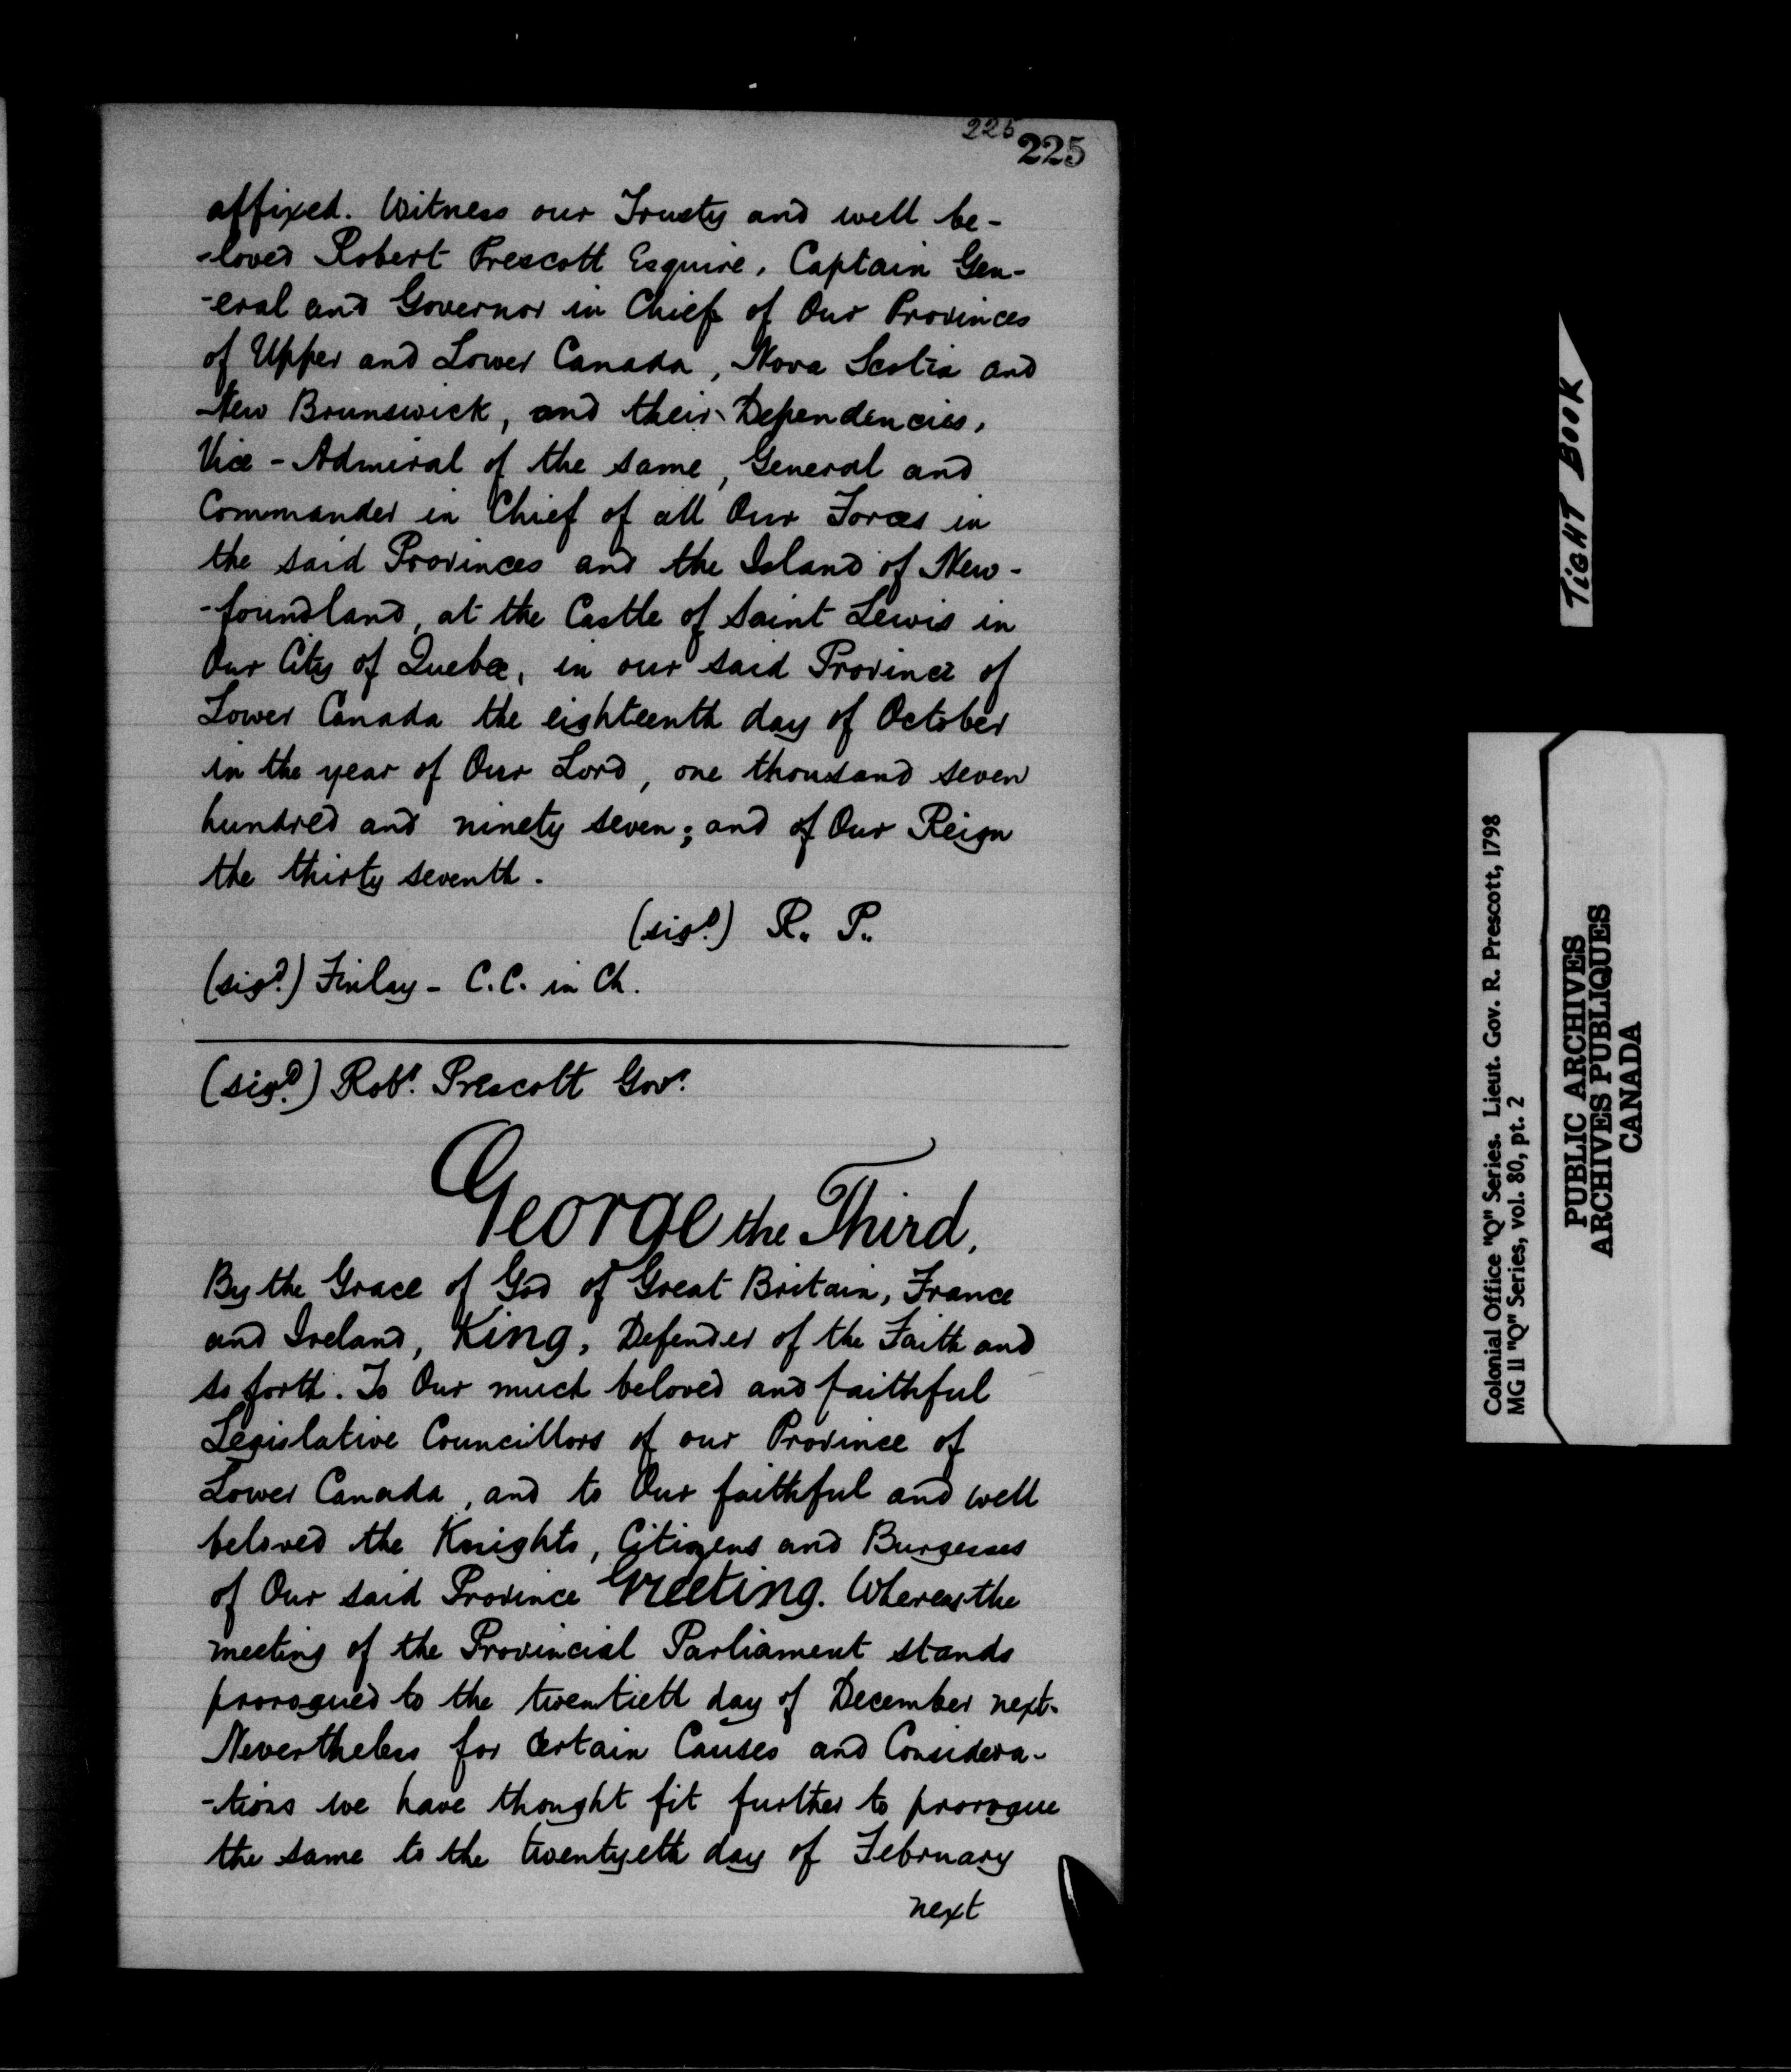 225
225
affixed. Witness our Trusty and well be-
-loved Robert Prescott Esquire, Captain Gen-
-eral and Governor in Chief of Our Provinces
of Upper and Lower Canada, Nova Scotia and
New Brunswick, and their Dependencies,
Vice-Admiral of the same, General and
Commander in Chief of all Our Forces in
the said Provinces and the Island of New-
-foundland, at the Castle of Saint Lewis in
Our City of Quebec, in our said Province of
Lower Canada the eighteenth day of October
in the year of Our Lord, one thousand seven
hundred and ninety seven; and of Our Reign
the thirty seventh.
(sigd.) R. P.
(sigd.) Finlay - C.C. in Ch.
(sigd.) Robt. Prescott Govr.
George the Third,
By the Grace of God of Great Britain, France
and Ireland, King, Defender of the Faith and
so forth. To Our much beloved and faithful
Legislative Councillors of our Province of
Lower Canada, and to Our faithful and well
beloved the Knights, Citizens and Burgesses
of Our said Province Greeting. Whereas the
meeting of the Provincial Parliament stands
prorogued to the twentieth day of December next.
Nevertheless for certain Causes and Considera-
-tions we have thought fit further to prorogue
the same to the twentyeth day of February
next
TIGHT BOOK
Colonial Office "Q" Series. Lieut. Gov. R. Prescott, 1798
MG 11 "Q" Series, vol. 80, pt. 2
PUBLIC ARCHIVES
ARCHIVES PUBLIQUES
CANADA